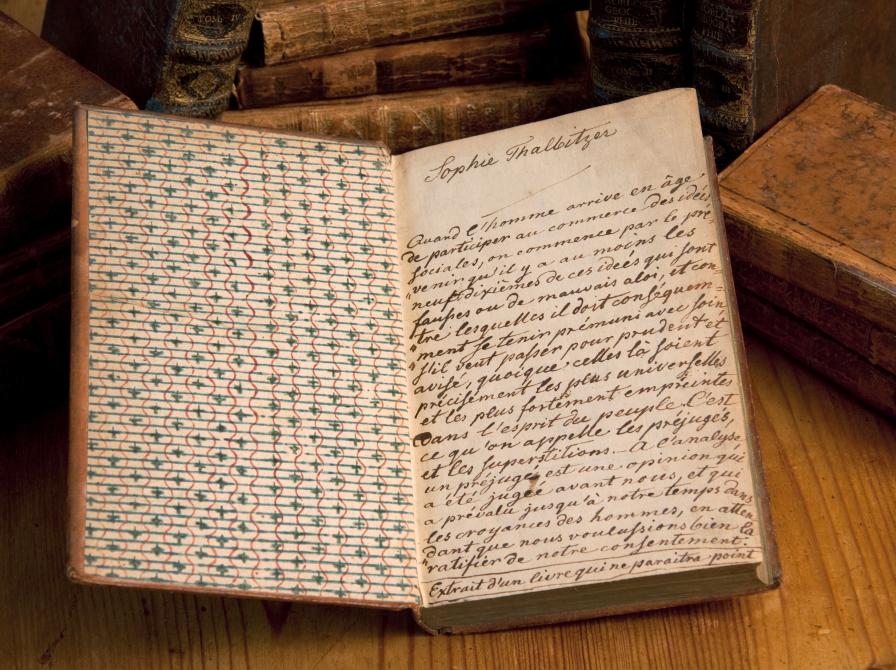 TOME II
Sophie Thalbitzer
Quand l'homme arrive en âge
de participer au commerce des idées
sociales, on commence par le pré
"venir qu'il y a au moins les
neuf dixièmes de ces idées qui sont
fausses ou de mauvais aloi, et con-
"tre lesquelles il doit conséquem=
"ment se tenir prémuni avec soin
s'il veut passer pour prudent et
avisé, quoique celles là soient
précisément les plus universelles
et les plus fortement empreintes
dans l'esprit du peuple. C'est
ce qu'on appelle les préjugés,
et les superstitions. A l'analyse
un préjugé est une opinion qui
a été jugée avant nous, et qui
a prévalu jusqu'à notre temps dans
les croyances des hommes, en atten
dant que nous voulussions bien la
"ratifier de notre consentement.
Extrait d'un livre qui ne paraitra point